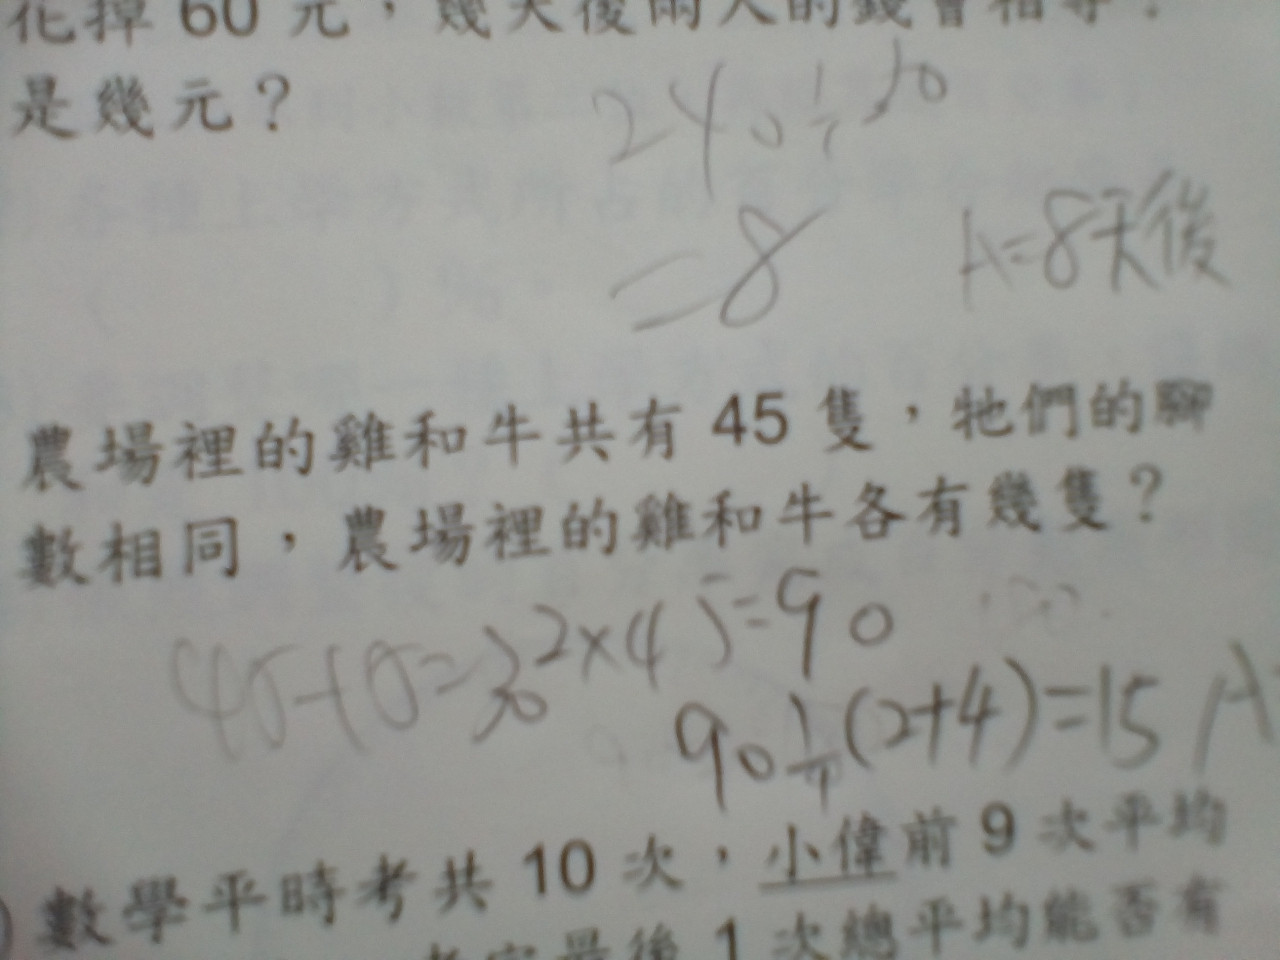 花掉 60 元，幾天後兩人的錢會相等？
是幾元？
240÷30
=8
A=8天後
農場裡的雞和牛共有 45 隻，牠們的腳
數相同，農場裡的雞和牛各有幾隻？
2×45=90
45-15=30
90÷(2+4)=15 A
數學平時考共 10 次，小偉前 9 次平均
最後 1 次總平均能否有